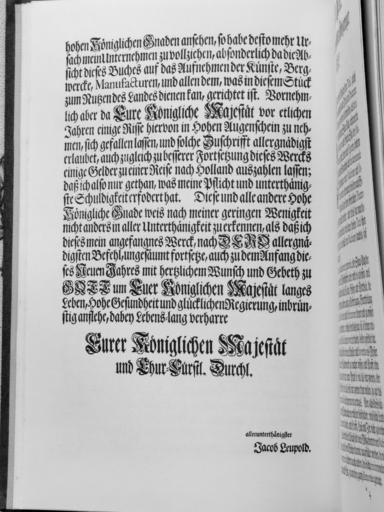 hohen Königlichen Gnaden ansehen, so habe desto mehr Ur-
sach mein Unternehmen zu vollziehen, absonderlich da die Ab-
sicht dieses Buches auf das Aufnehmen der Künste, Berg-
wercke, Manufacturen, und allen dem, was in diesem Stück
zum Nutzen des Landes dienen kan, gerichtet ist. Vornehm-
lich aber da Eure Königliche Majestät vor etlichen
Jahren einige Risse hiervon in Hohen Augenschein zu neh-
men, sich gefallen lassen, und solche Zuschrifft allergnädigst
erlaubet, auch zugleich zu besserer Fortsetzung dieses Wercks
einige Gelder zu einer Reise nach Holland auszahlen lassen;
daß ich also nur gethan, was meine Pflicht und unterthänig-
ste Schuldigkeit erfodert hat. Diese und alle andere Hohe
Königliche Gnade weis nach meiner geringen Wenigkeit
nicht anders in aller Unterthänigkeit zu erkennen, als daß ich
dieses mein angefangnes Werck, nach DERO allergnä-
digsten Befehl, ungesäumt fortsetze, auch zu dem Anfang die-
ses Neuen Jahres mit hertzlichem Wunsch und Gebeth zu
GOTT um Euer Königlichen Majestät langes
Leben, Hohe Gesundheit und glücklichen Regierung, inbrün-
stig anflehe, dabey Lebens-lang verharre
Eurer Königlichen Majestät
und Chur-Fürstl. Durchl.
allerunterthänigster
Jacob Leupold.